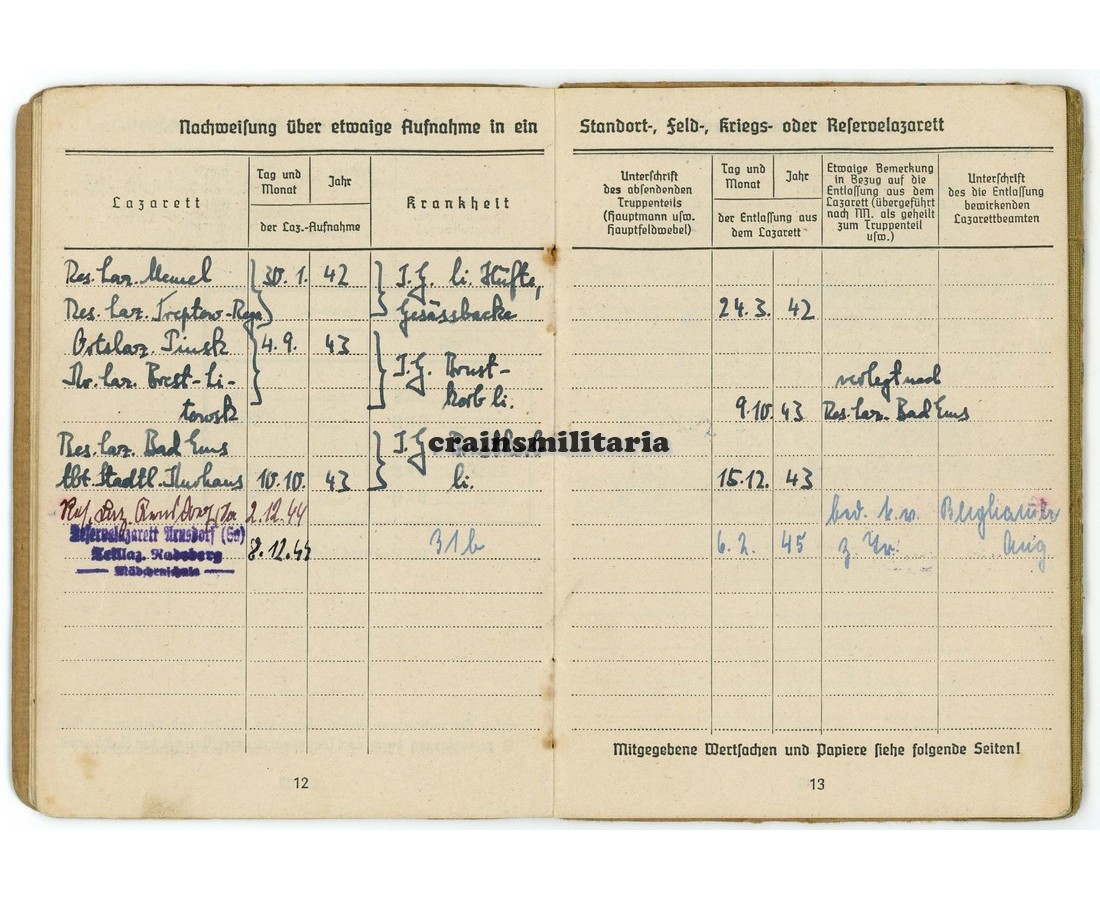 Nachweisung über etwaige Aufnahme in ein Standort-, Feld-, Kriegs- oder Reservelazarett
Lazarett
Tag und Monat
Jahr
der Laz.-Aufnahme
Krankheit
Unterschrift
des absendenden
Truppenteils
(Hauptmann usw.
Hauptfeldwebel)
Tag und Monat
Jahr
der Entlassung aus
dem Lazarett
Etwaige Bemerkung
in Bezug auf die
Entlassung aus dem
Lazarett (übergeführt
nach NN. als geheilt
zum Truppenteil
usw.)
Unterschrift
des die Entlassung
bewirkenden
Lazarettbeamten
Res. Laz. Memel 30. 1. 42 I.G. li. Hüfte,
Res. Laz. Treptow-Rega Gesässbacke 24. 3. 42
Ortslaz. Pinsk 4. 9. 43
Kr. laz. Brest-Li- I.G. Brust- verlegt nach
towsk korb li. 9.10. 43 Res. Laz. Bad Ems
Res. Laz. Bad Ems I.G.
crainsmilitaria
Abt. Städtl. Kurhaus 10.10. 43 li. 15.12. 43
Res. Laz. 2.12.44
Reservelazarett Arnsdorf (Sa) 8.12.44 31b 6. 2. 45
Teillaz. Radeberg
Mädchenschule
Mitgegebene Wertsachen und Papiere siehe folgende Seiten!
12
13